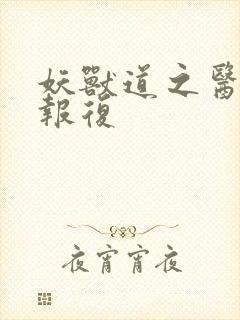 妖獸道之醫
報復
夜宵宵夜